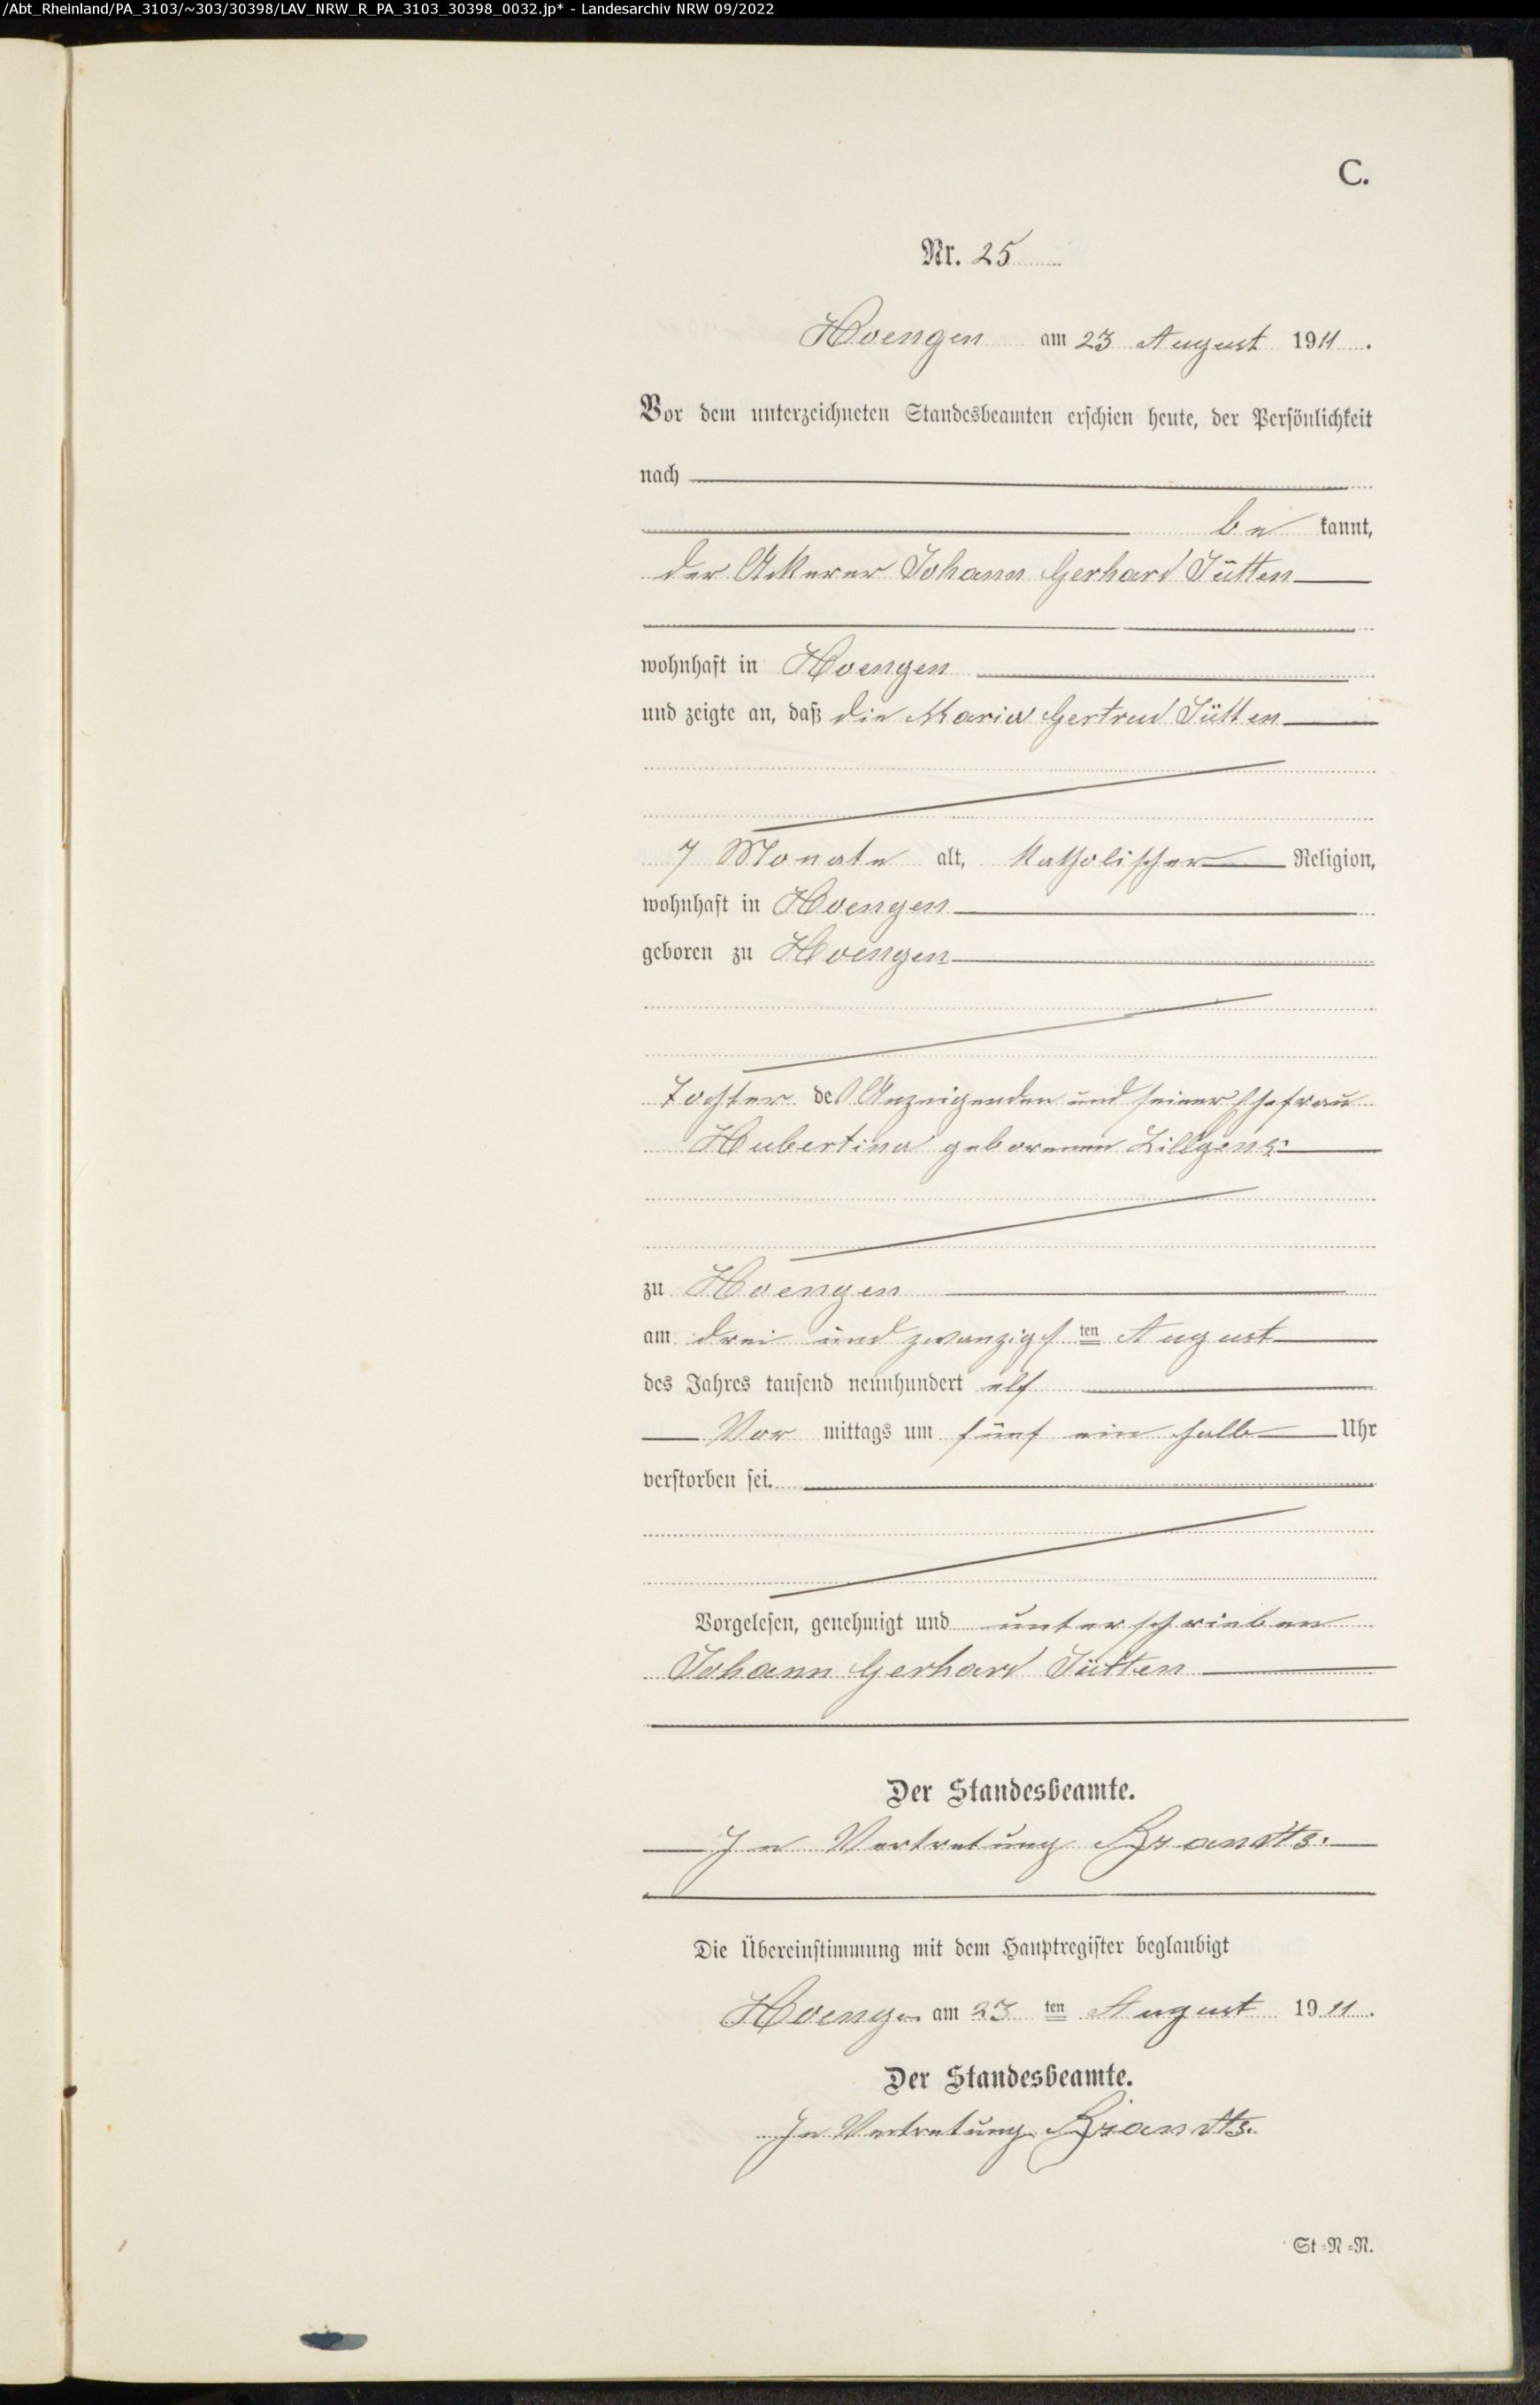 /Abt_Rheinland/PA_3103/~303/30398/LAV_NRW_R_PA_3103_30398_0032.jp* - Landesarchiv NRW 09/2022
C.
Nr. 25
Hoengen am 23 August 1911.
Vor dem unterzeichneten Standesbeamten erschien heute, der Persönlichkeit
nach
be kannt,
der Ackerer Johann Gerhard Jütten
wohnhaft in Hoengen
und zeigte an, daß die Maria Gertrud Jütten
7 Monate alt, katholischer Religion,
wohnhaft in Hoengen
geboren zu Hoengen
Tochter des Anzeigenden und seiner Ehefrau
Hubertina geborenen Zillgens
zu Hoengen
am drei und zwanzigsten August
des Jahres tausend neunhundert elf
Vor mittags um fünf ein halb Uhr
verstorben sei.
Vorgelesen, genehmigt und unterschrieben
Johann Gerhard Jütten
Der Standesbeamte.
In Vertretung Brandts.
Die Übereinstimmung mit dem Hauptregister beglaubigt
Hoengen am 23 ten August 1911.
Der Standesbeamte.
In Vertretung Brandts.
St=N=R.